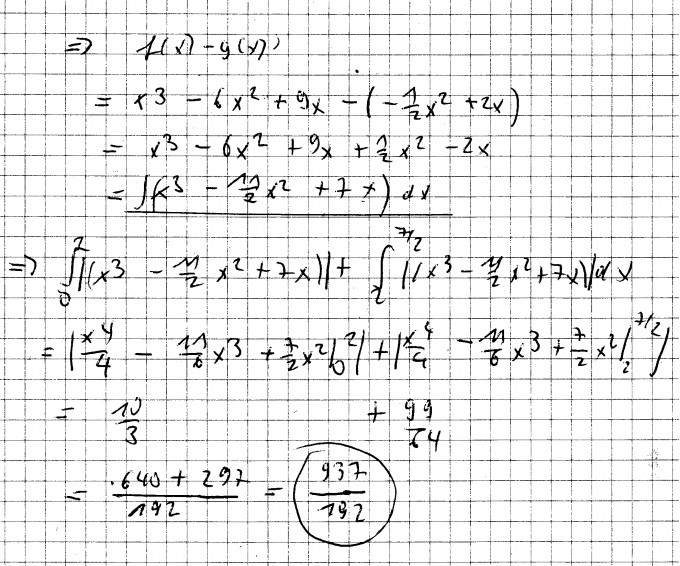 ⇒ f(x) - g(x)
= x³ - 6x² + 9x - (-1/2 x² + 2x)
= x³ - 6x² + 9x + 1/2 x² - 2x
= ∫(x³ - 11/2 x² + 7x) dx
⇒ ∫₀² |(x³ - 11/2 x² + 7x)| + ∫₂^(7/2) |(x³ - 11/2 x² + 7x)| dx
= |x⁴/4 - 11/6 x³ + 7/2 x² |₀²| + |x⁴/4 - 11/6 x³ + 7/2 x² |₂^(7/2)|
= 10/3 + 99/64
= (640 + 297)/192 = 937/192